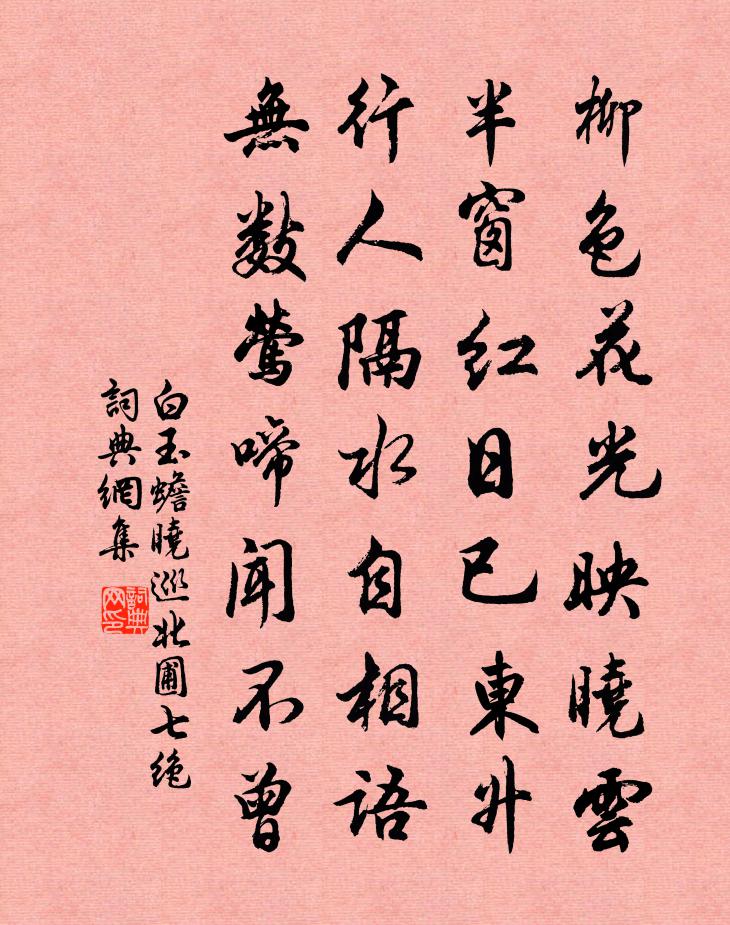 柳色花光映曉雲
半窗紅日已東升
行人隔水自相語
無數鶯啼聞不曾
白玉蟾曉巡北圃七絕
詞典網集
詞典
网印